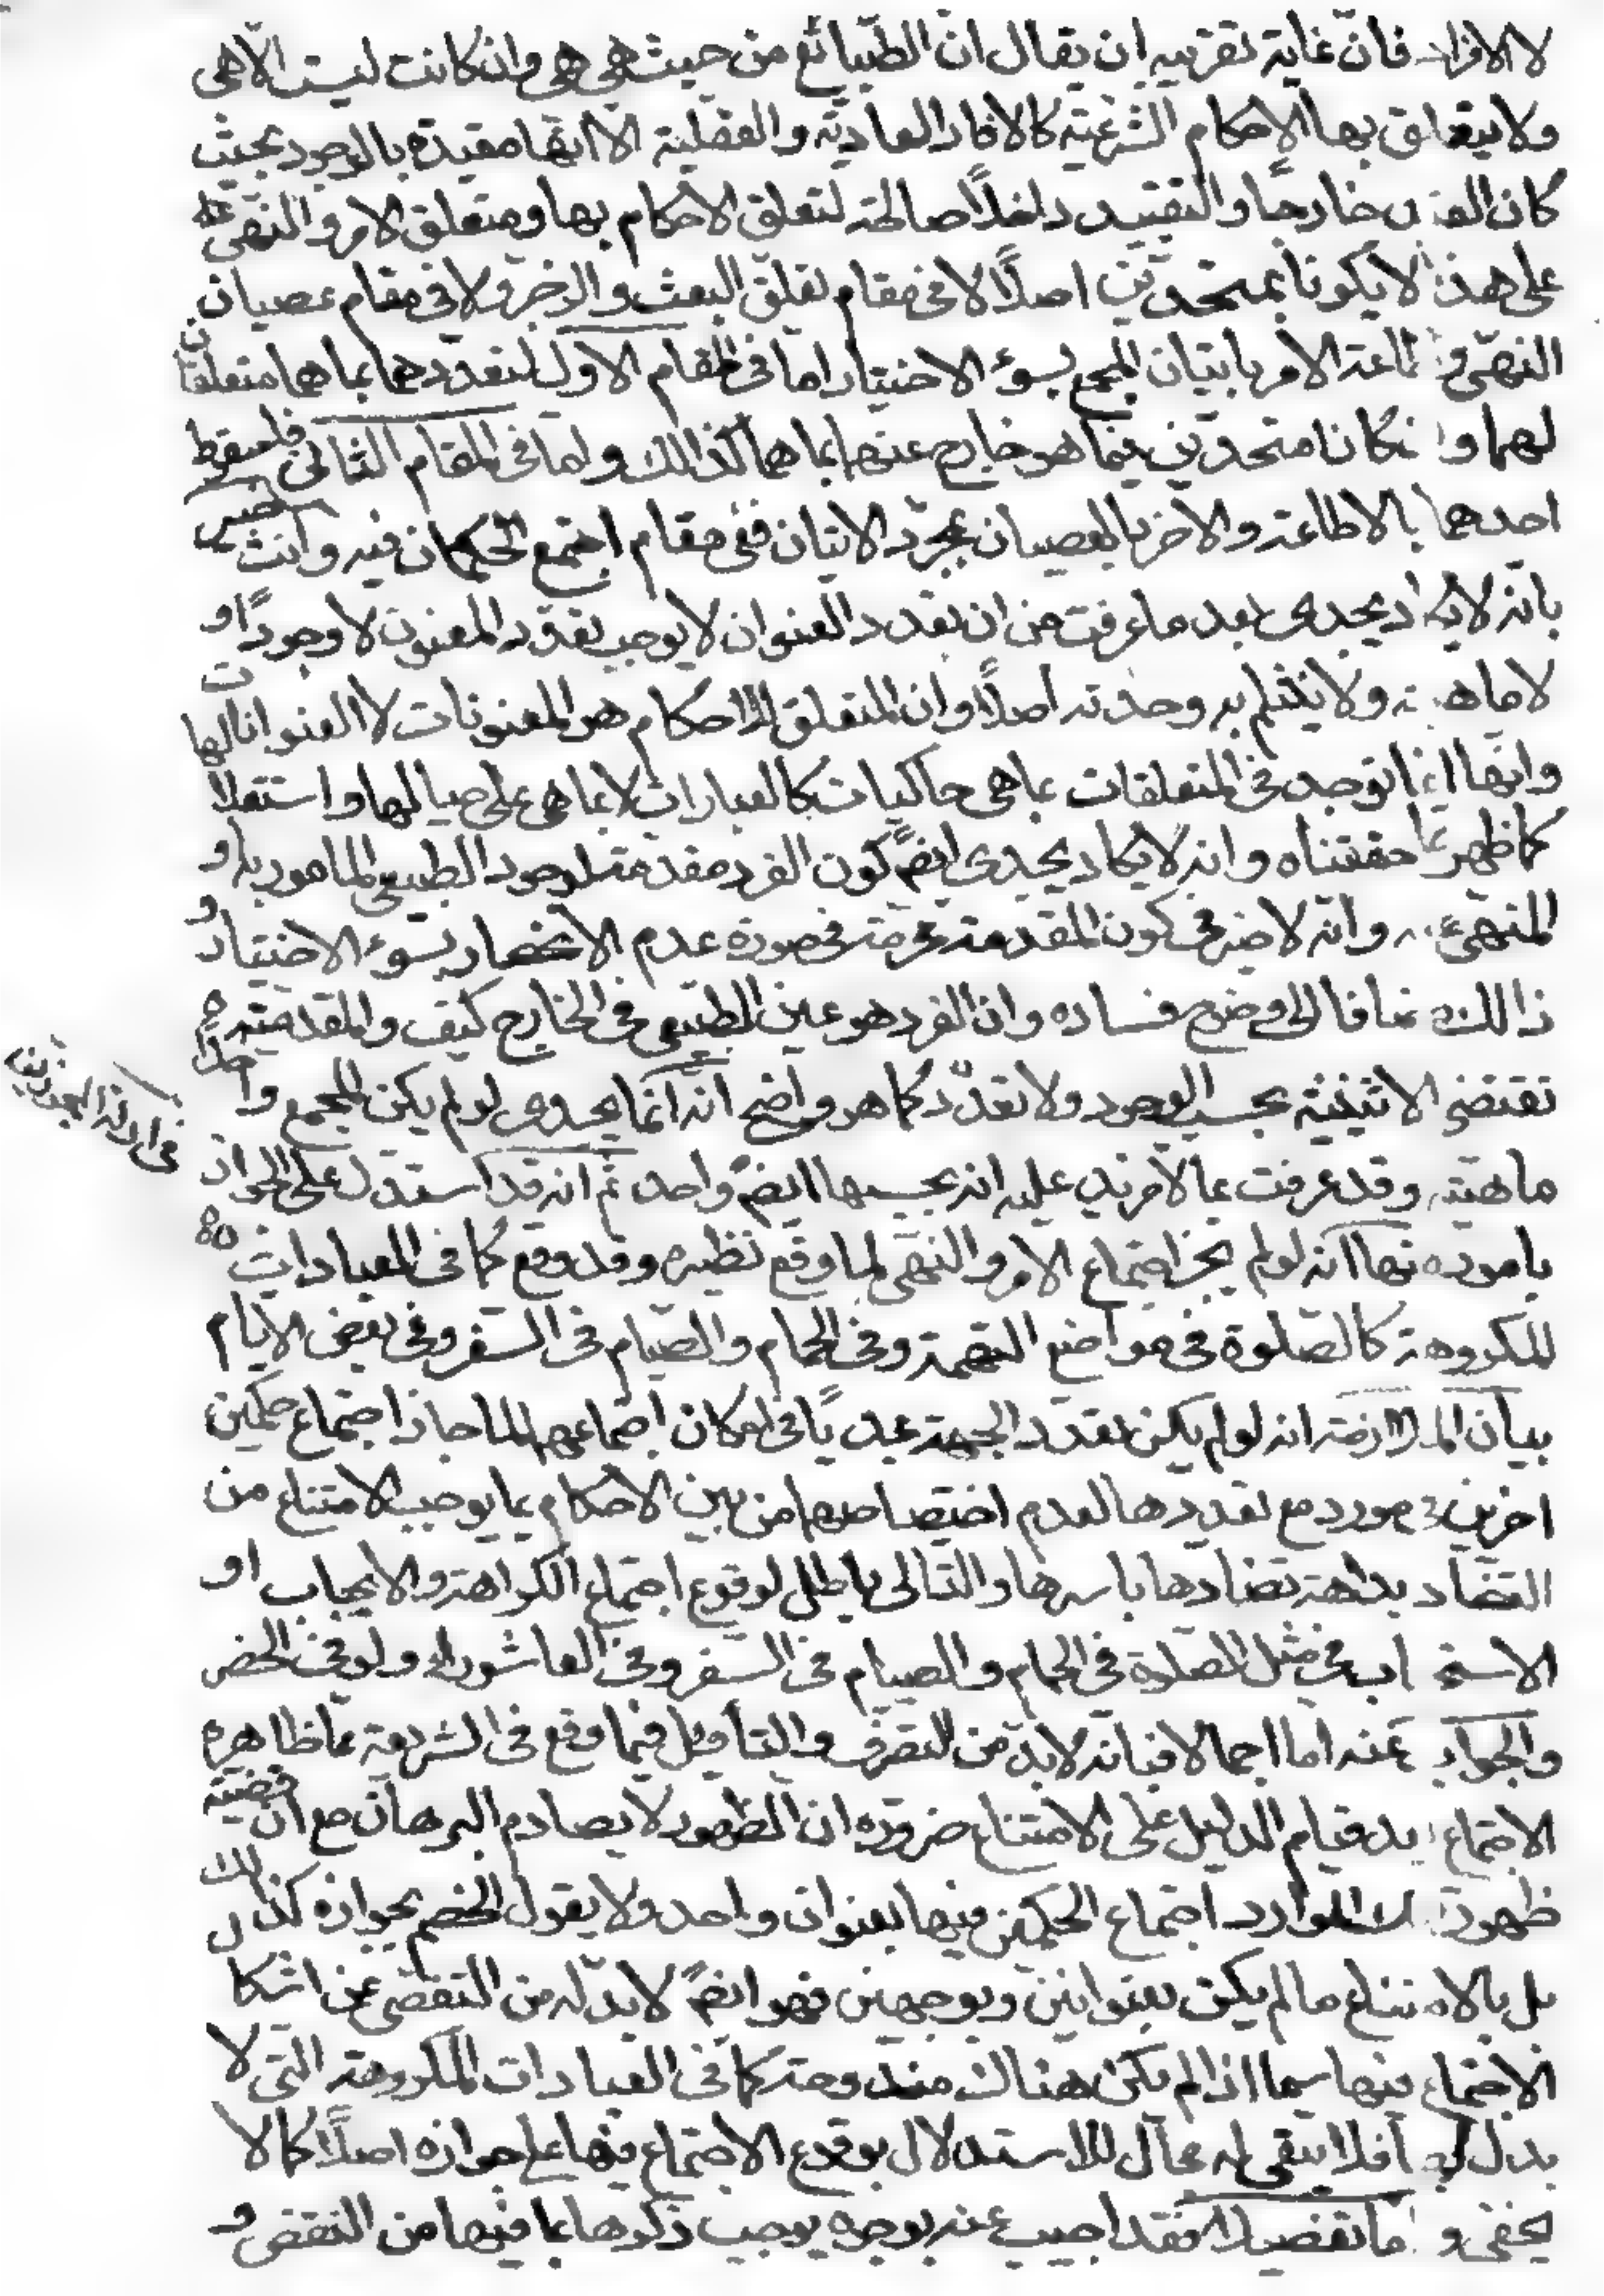 لا الافراد فان غاية تقريبه ان يقال ان الطبائع من حيث هى هى وان كانت ليست الا هى
ولا يتعلق بها الاحكام الشرعية كالاثار العادية والعقلية الا انها مقيدة بالوجود بحيث
كان القيد خارجا والتقييد داخلا صالحة لتعلق الاحكام بها ومتعلق الامر والنهى
على هذا لا يكونا بمتحدين اصلا لا فى مقام تعلق البعث والزجر ولا فى مقام عصيان
النهى و اطاعة الامر باتيان المجمع بسوء الاختيار اما فى المقام الاول لتعددهما بما هما متعلقان
لهما وان كانا متحدين فيما هو خارج عنهما بما هما كذالك واما فى المقام الثانى فلسقوط
احدهما بالاطاعة والاخر بالعصيان بمجرد الاتيان ففى مقام اجتمع الحكمان فيه وانت خبير
بانه لا يكاد يجدى بعد ما عرفت من ان تعدد العنوان لا يوجب تعدد المعنون لا وجودا و
لا ماهية ولا ينثلم به وحدته اصلا وان المتعلق للاحكام هو المعنونات لا العنوانات
وانها انما توخذ فى المتعلقات بما هى حاكيات كالعبارات لا بما هى على حيالها واستقلالها
كما ظهر مما حققناه وانه لا يكاد يجدى ايضا كون الفرد مقدمة لوجود الطبيعى المامور به او
المنهى عنه وانه لا ضير فى كون المقدمة محرمة فى صورة عدم الانحصار بسوء الاختيار و
ذالك مضافا الى وضوح فساده وان الفرد هو عين الطبيعى فى الخارج كيف والمقدمية
تقتضى الاثنينية بحسب الوجود ولا تعدد كما هو واضح انه انما يجدى لو لم يكن المجمع واحدا
ماهية وقد عرفت بما لا مزيد عليه انه بحسبها ايضا واحد ثم انه قد استدل على الجواز
بامور منها انه لو لم يجز اجتماع الامر والنهى لما وقع نظيره وقد وقع كما فى العبادات
المكروهة كالصلوة فى مواضع التهمة وفى الحمام والصيام فى السفر وفى بعض الايام
بيان الملازمة انه لو لم يكن تعدد الجهة مجديا فى امكان اجتماعهما لما جاز اجتماع حكمين
اخرين فى مورد مع تعددها لعدم اختصاصهما من بين الاحكام بما يوجب الامتناع من
التضاد بداهة تضادها باسرها والتالى باطل لوقوع اجتماع الكراهة والايجاب او
الاستحباب فى مثل الصلوة فى الحمام والصيام فى السفر وفى العاشوراء ولو فى الحضر
والجواب عنه اما اجمالا فبانه لا بد من التصرف والتأويل فيما وقع فى الشريعة مما ظاهره
الاجتماع بعد قيام الدليل على الامتناع ضرورة ان الظهور لا يصادم البرهان مع ان قضية
ظهور تلك الموارد اجتماع الحكمين فيها بعنوان واحد ولا يقول الخصم بجوازه كذالك
بل بالامتناع ما لم يكن بعنوانين وبوجهين فهو ايضا لا بد له من التفصى عن اشكال
الاجتماع فيها سيما اذا لم يكن هناك مندوحة كما فى العبادات المكروهة التى لا
بدل لها فلا يبقى له مجال للاستدلال بوقوع الاجتماع فيها على جوازه اصلا كما لا
يخفى و اما تفصيلا فقد اجيب عنه بوجوه يوجب ذكرها بما فيها من النقض و